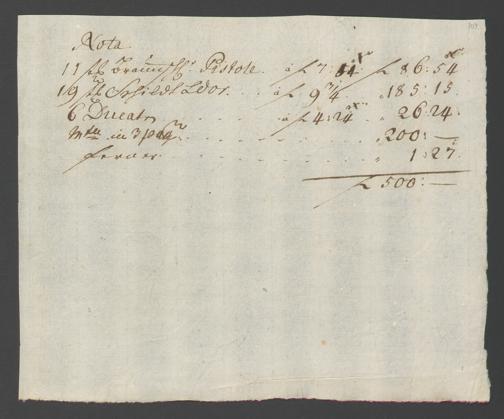 Nota
11 st Braunschw. Pistole. à f 7:54 xr f 86:54 xr
19 st Schildt Ldor. à f 9 3/4 „ 185:15
6 Ducaten à f 4:24 xr „ 26:24
in 3 „ 200:—
ferner „ 1:27
f 500:—